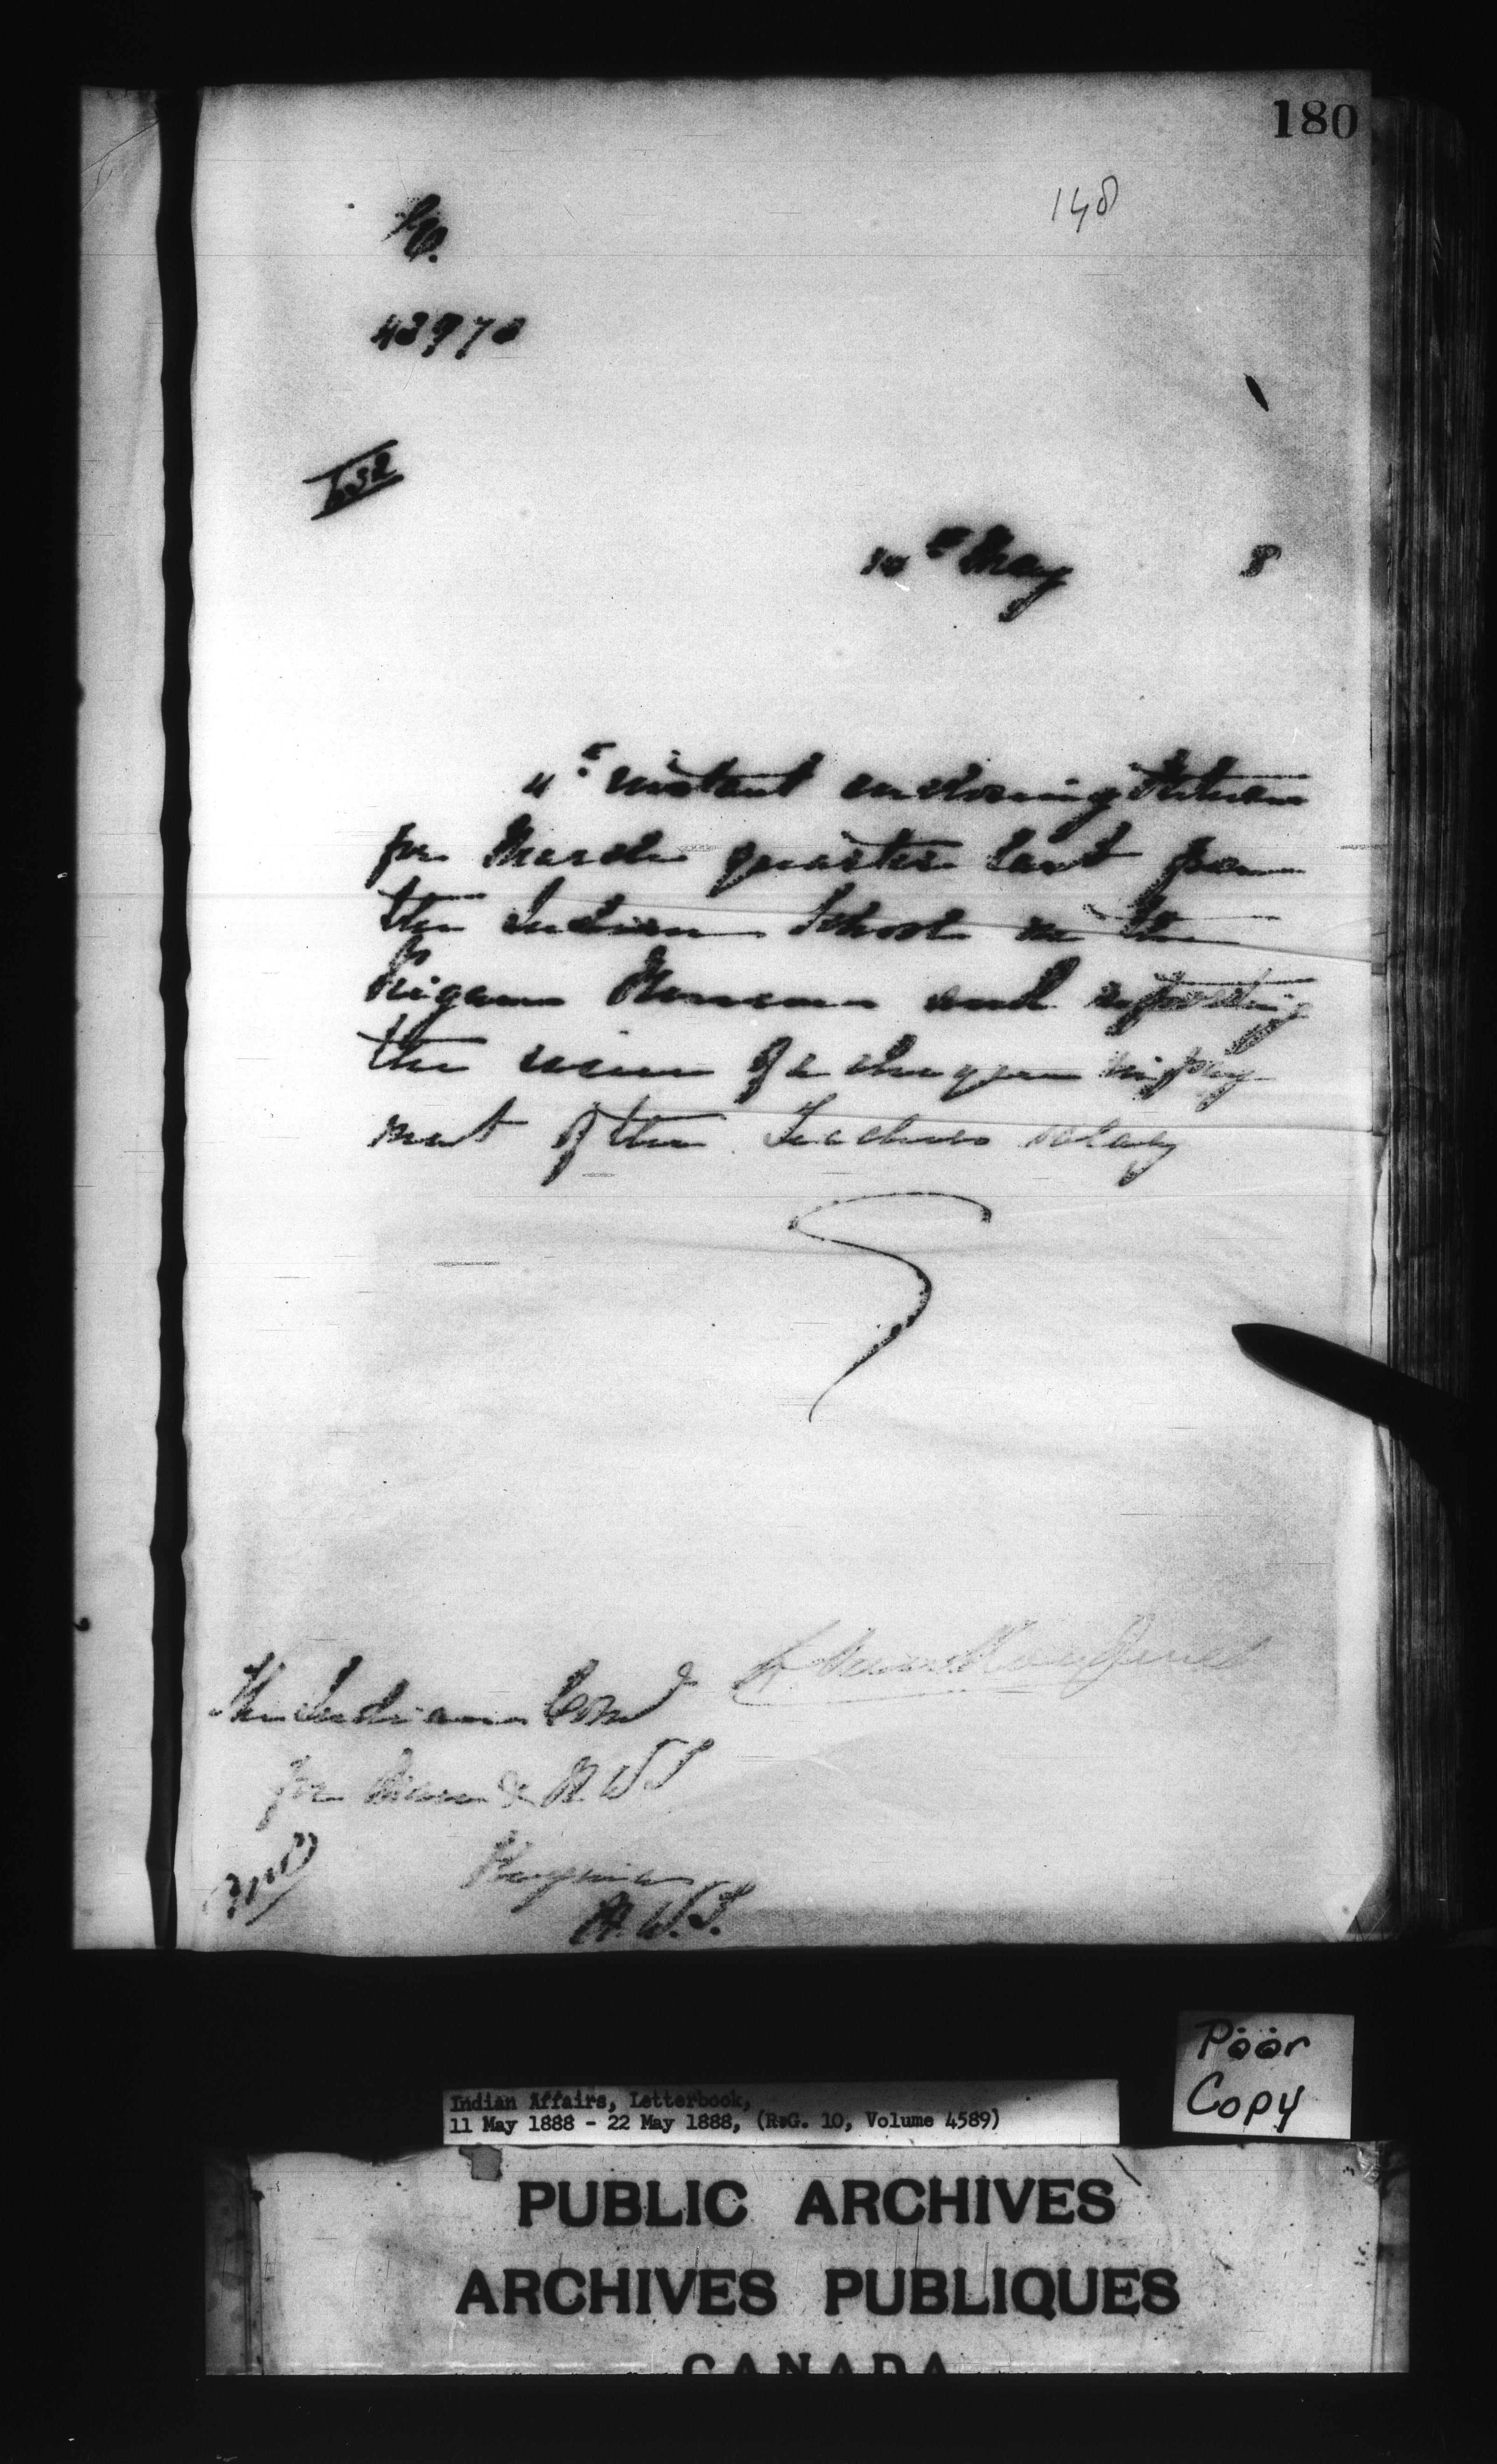 180
148
10th May 8
4th instant enclosing Return
for March quarter last from
the Indian School on the
Reserve and reporting
the issue of a cheque in pay
ment of the Teachers salary
The Indian Comr
for Man & N.W.T
Regina
N.W.T.
Poor
Copy
Indian Affairs, Letterbook,
11 May 1888 - 22 May 1888, (R.G. 10, Volume 4589)
PUBLIC ARCHIVES
ARCHIVES PUBLIQUES
CANADA